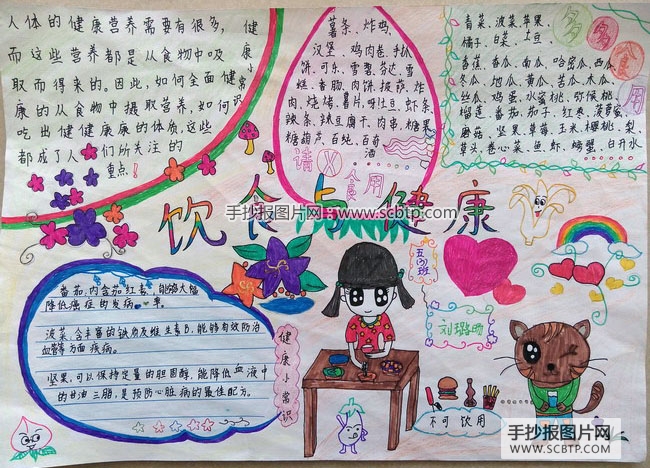 人体的健康营养需要有很多,
而这些营养都是从食物中吸
取而得来的。因此,如何全面健
康的从食物中摄取营养,如何
吃出健健康康的体质,这些
都成了人们所关注的
重点!
健康常识
薯条、炸鸡、
汉堡 鸡肉卷、手抓
饼、可乐、雪碧、芬达、雪
糕、香肠、肉饼、披萨、炸
肉、烧烤、薯片、呀!土豆、虾条、
辣条、辣豆腐干、肉串、糖果、
糖葫芦、
酒
请 X 食用
青菜、菠菜、苹果、
橘子、白菜、土豆、
香蕉、香瓜、南瓜、哈密瓜、西瓜、
冬瓜、地瓜、黄瓜、苦瓜、木瓜、
丝瓜、鸡蛋、水蜜桃、猕猴桃、
榴莲、番茄、茄子、红枣、菠萝蜜、
蘑菇、坚果、草莓、玉米、樱桃、梨、
草头、卷心菜、鱼、虾、螃蟹、白开水
多多食用
饮食与健康
手抄报图片网:www.scbtp.com
番茄,内含茄红素,能够大幅
降低癌症的发病率。
菠菜,含丰富的铁质及维生素B,能够有效防治
血管方面疾病。
坚果,可以保持定量的胆固醇,能降低血液中
的甘油三脂,是预防心脏病的最佳配方。
健康小常识
五(3)班
不可饮用
手抄报图片网
SCBTP.COM